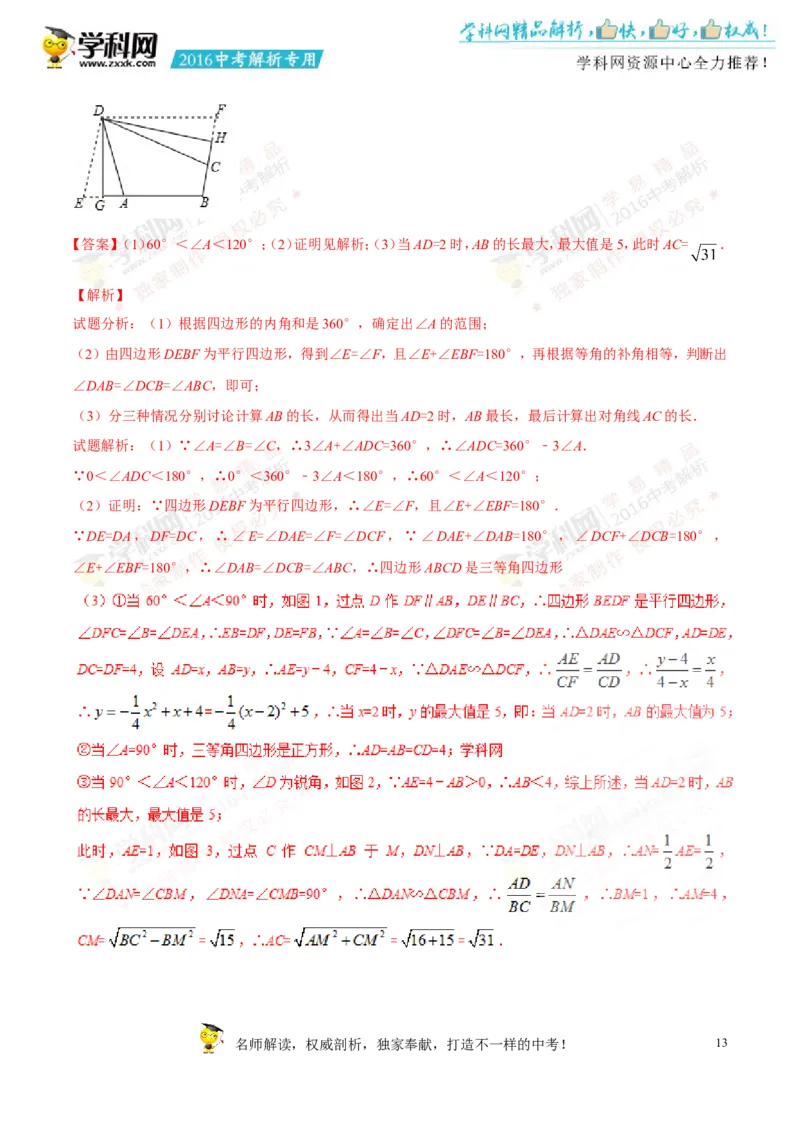 学科网精品解析，快，好，权威！
学科网
www.zxxk.com
2016中考解析专用
学科网资源中心全力推荐！
D F
H
C
E G A B
【答案】(1)60°＜∠A＜120°；(2)证明见解析；(3)当AD=2时，AB的长最大，最大值是5，此时AC=√31．
【解析】
试题分析：（1）根据四边形的内角和是360°，确定出∠A的范围；
（2）由四边形DEBF为平行四边形，得到∠E=∠F，且∠E+∠EBF=180°，再根据等角的补角相等，判断出
∠DAB=∠DCB=∠ABC，即可；
（3）分三种情况分别讨论计算AB的长，从而得出当AD=2时，AB最长，最后计算出对角线AC的长．
试题解析：（1）∵∠A=∠B=∠C，∴3∠A+∠ADC=360°，∴∠ADC=360°﹣3∠A．
∵0＜∠ADC＜180°，∴0°＜360°﹣3∠A＜180°，∴60°＜∠A＜120°；
（2）证明：∵四边形DEBF为平行四边形，∴∠E=∠F，且∠E+∠EBF=180°．
∵DE=DA，DF=DC，∴∠E=∠DAE=∠F=∠DCF，∵∠DAE+∠DAB=180°，∠DCF+∠DCB=180°，
∠E+∠EBF=180°，∴∠DAB=∠DCB=∠ABC，∴四边形ABCD是三等角四边形
（3）①当 60°＜∠A＜90°时，如图 1，过点 D 作 DF∥AB，DE∥BC，∴四边形 BEDF 是平行四边形，
∠DFC=∠B=∠DEA，∴EB=DF，DE=FB，∵∠A=∠B=∠C，∠DFC=∠B=∠DEA，∴△DAE∽△DCF，AD=DE，
DC=DF=4，设 AD=x，AB=y，∴AE=y﹣4，CF=4﹣x，∵△DAE∽△DCF，∴AE/CF=AD/CD，∴(y−4)/(4−x)=x/4，
∴y=−1/4x²+x+4=−1/4(x−2)²+5，∴当x=2时，y的最大值是5，即：当 AD=2时，AB 的最大值为5；
②当∠A=90°时，三等角四边形是正方形，∴AD=AB=CD=4；学科网
③当 90°＜∠A＜120°时，∠D 为锐角，如图2，∵AE=4﹣AB＞0，∴AB＜4，综上所述，当AD=2时，AB
的长最大，最大值是5；
此时，AE=1，如图 3，过点 C 作 CM⊥AB 于 M，DN⊥AB，∵DA=DE，DN⊥AB，∴AN=1/2AE=1/2，
∵∠DAN=∠CBM，∠DNA=∠CMB=90°，∴△DAN∽△CBM，∴AD/BC=AN/BM，∴BM=1，∴AM=4，
CM=√(BC²−BM²)=√15，∴AC=√(AM²+CM²)=√(16+15)=√31．
名师解读，权威剖析，独家奉献，打造不一样的中考！ 13